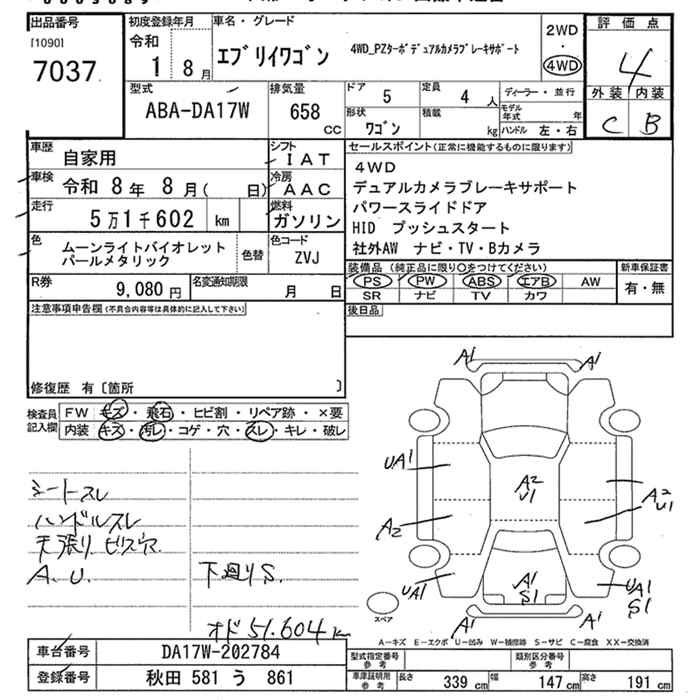 出品番号 初度登録年月 車名・グレード 2WD 評価点
[1090] 令和 ・
7037 1 8月 エブリイワゴン 4WD_PZターボデュアルカメラブレーキサポート 4WD 4
型式 排気量 ドア 5 定員 4 人 ディーラー・並行 外装 内装
ABA-DA17W 658 cc 形状 ワゴン 積載 kg モデル年式 年 C B
ハンドル 左・右
車歴 自家用 シフト IAT セールスポイント(正常に機能するものに限ります)
車検 令和 8年 8月( 日) 冷房 AAC 4WD
デュアルカメラブレーキサポート
走行 5万1千602 km 燃料 ガソリン パワースライドドア
HID プッシュスタート
色 ムーンライトバイオレット 色替 色コード 社外AW ナビ・TV・Bカメラ
パールメタリック ZVJ
装備品(純正品に限り○をつけてください) 新車保証書
R券 9,080円 名変通知期限 月 日 PS PW ABS エアB AW 有・無
SR ナビ TV カワ
注意事項申告欄(不具合内容等は具体的に記入して下さい) 後日品
修復歴 有〔箇所 〕
検査員記入欄 FW キズ・飛石・ヒビ割・リペア跡・×要
内装 キズ・汚レ・コゲ・穴・スレ・キレ・破レ
A1 A1
UA1 A2 U1 A2 U1
A2
UA1 A1 S1 UA1 S1
A1 A1
シートスレ
ハンドルスレ
天張り ビズアス
A.U. 下廻りS.
オド51.604km
スペア
A−キズ E−エクボ U−凹み W−補修跡 S−サビ C−腐食 XX−交換済
車台番号 DA17W-202784 型式指定番号 参考 類別区分番号 参考
登録番号 秋田 581 う 861 車庫証明用 参考 長さ 339 cm 幅 147 cm 高さ 191 cm